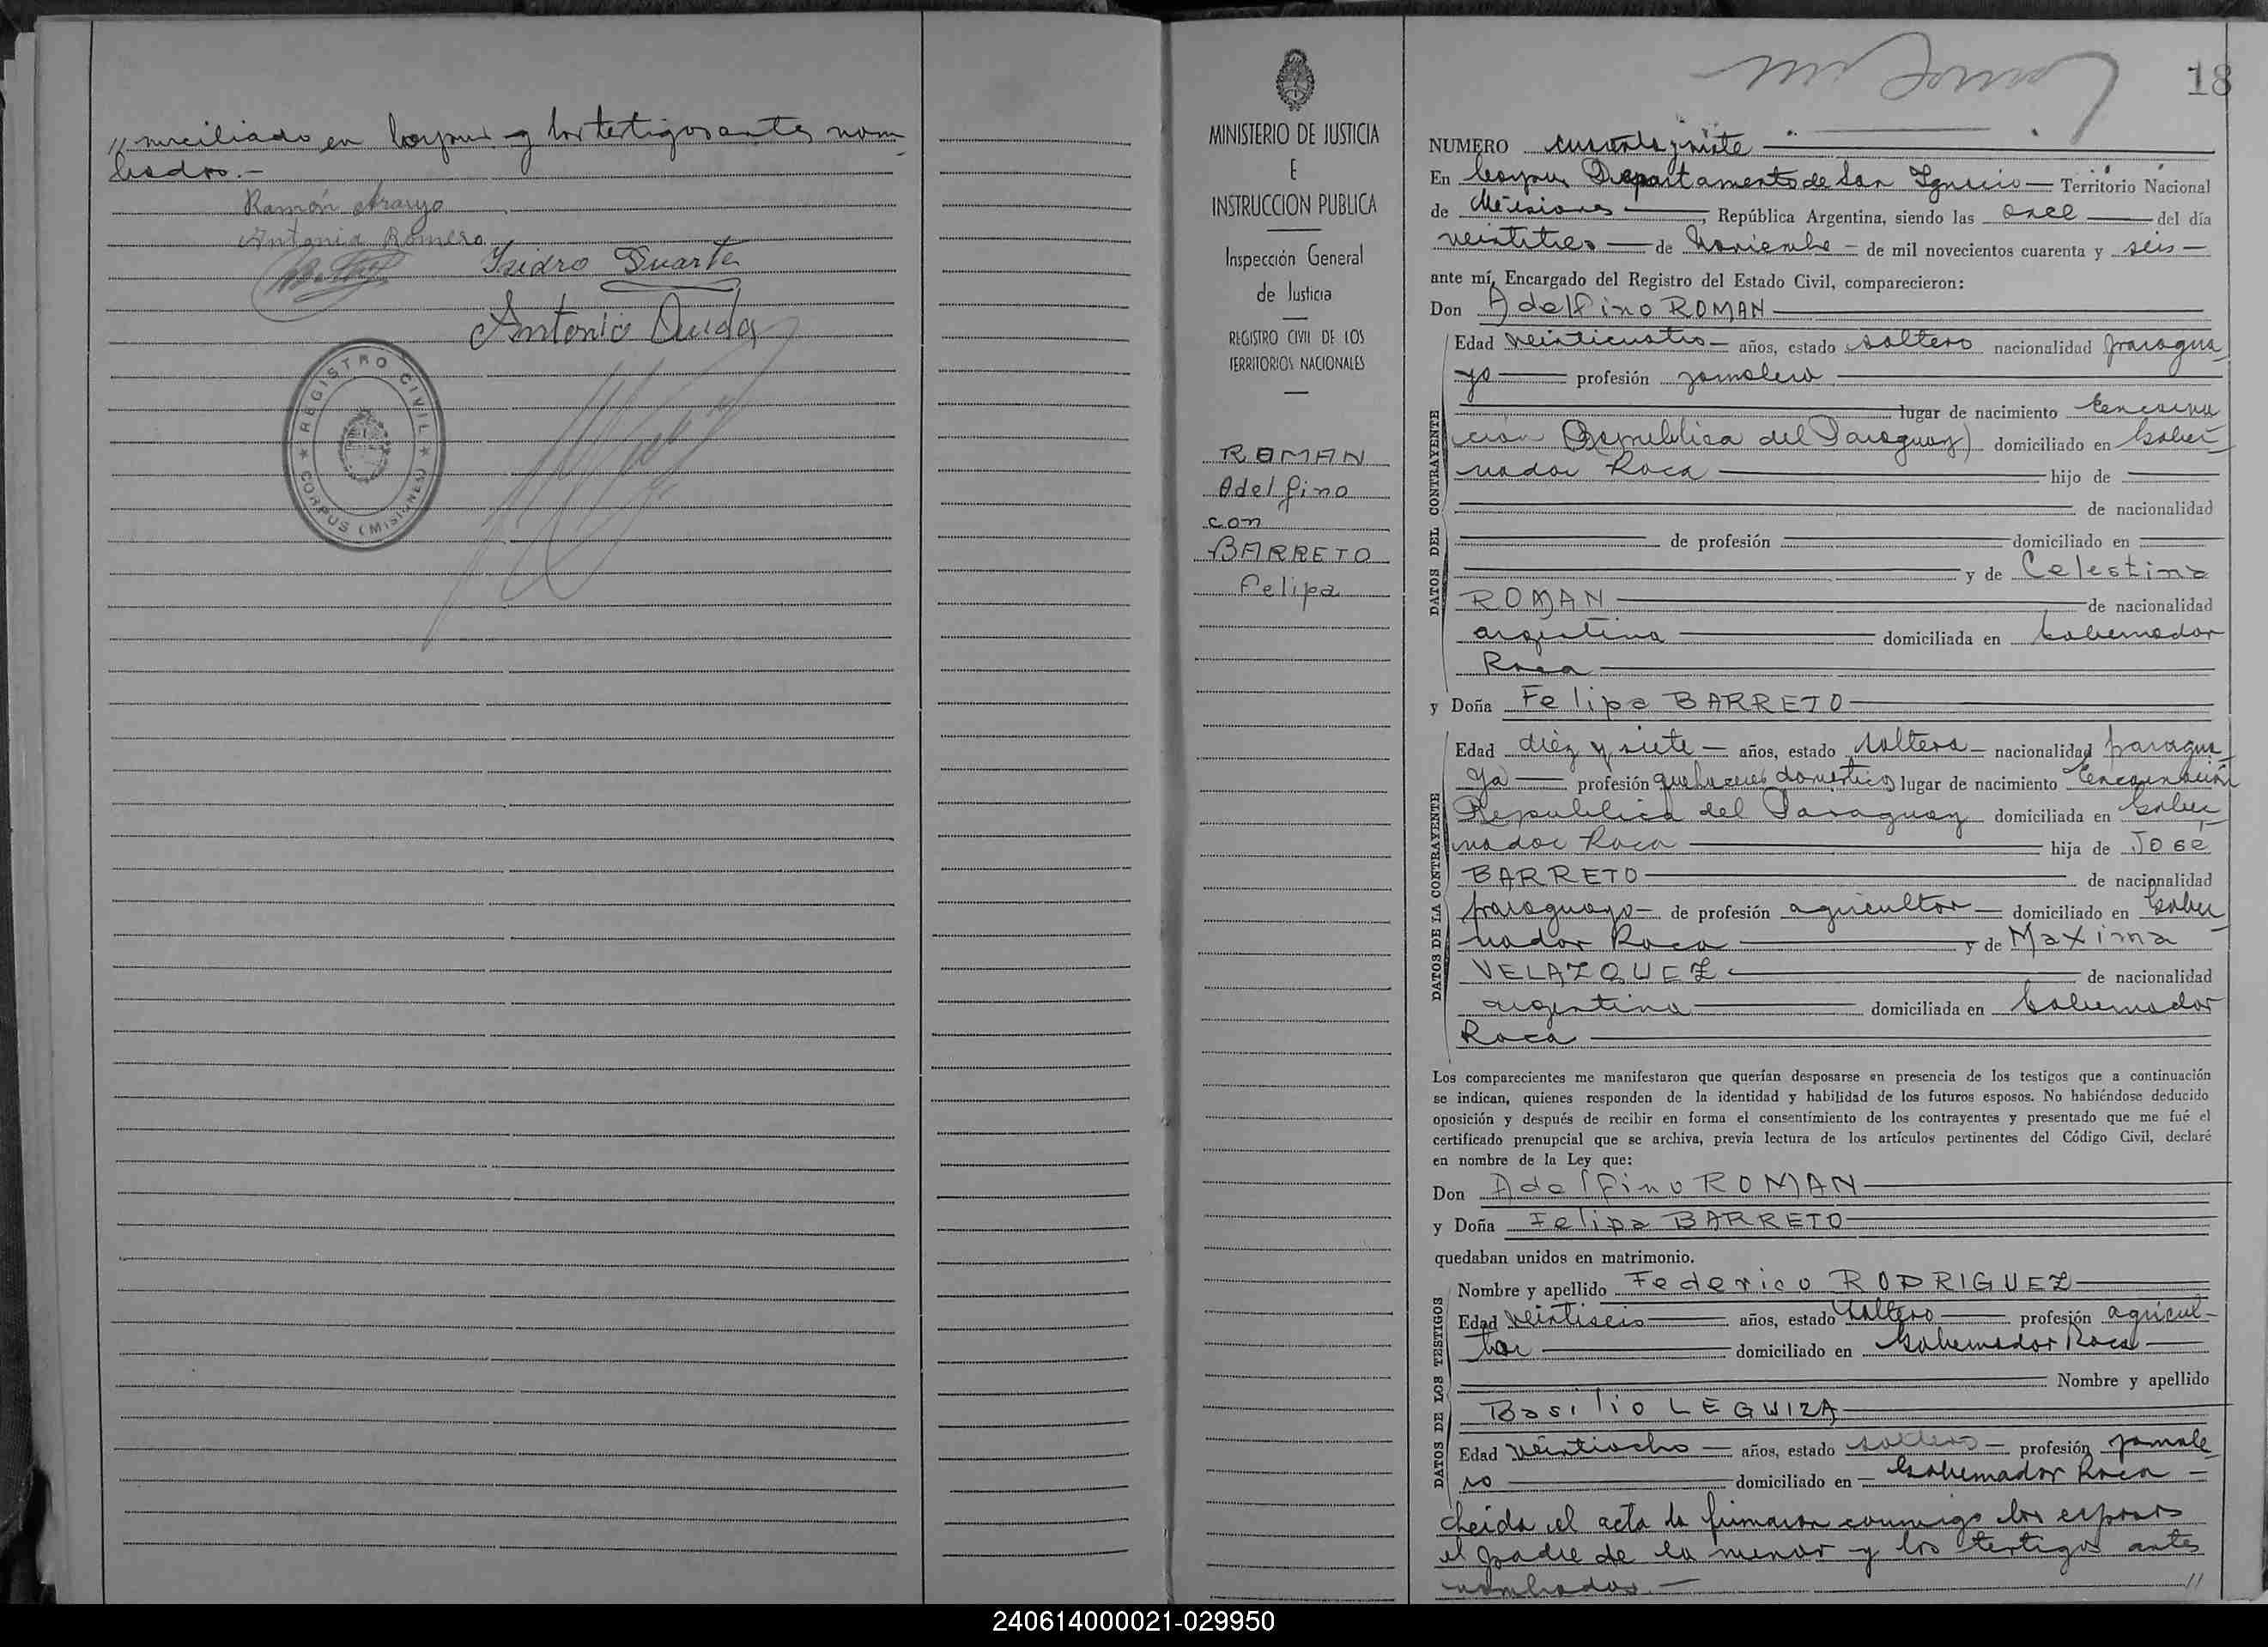 //miciliado en Corpus y los testigos antes nom
brados.-
Ramón Araujo
Antonia Romero
Isidro Duarte
Antonio
REGISTRO CIVIL
CORPUS (MISIONES)
MINISTERIO DE JUSTICIA
E
INSTRUCCION PUBLICA
Inspección General
de Justicia
REGISTRO CIVIL DE LOS
TERRITORIOS NACIONALES
ROMAN
Adelfino
con
BARRETO
Felipa
18
NUMERO cuarenta y siete
En Corpus Departamento de San Ignacio — Territorio Nacional
de Misiones —, República Argentina, siendo las once — del día
veintitres — de Noviembre — de mil novecientos cuarenta y seis —
ante mí, Encargado del Registro del Estado Civil, comparecieron:
Don Adelfino ROMAN
DATOS DEL CONTRAYENTE
Edad veinticuatro — años, estado soltero nacionalidad paragua
yo — profesión jornalero
lugar de nacimiento Encarna
ción (Republica del Paraguay) domiciliado en Gober
nador Roca — hijo de —
— de nacionalidad
— de profesión — domiciliado en —
— y de Celestina
ROMAN — de nacionalidad
argentina — domiciliada en Gobernador
Roca
y Doña Felipa BARRETO
DATOS DE LA CONTRAYENTE
Edad diez y siete — años, estado soltera — nacionalidad paragua
ya — profesión quehaceres domesticos lugar de nacimiento Encarnación
Republica del Paraguay domiciliada en Gober
nador Roca — hija de José
BARRETO — de nacionalidad
paraguayo — de profesión agricultor — domiciliado en Gober
nador Roca — y de Maxima
VELAZQUEZ — de nacionalidad
argentina — domiciliada en Gobernador
Roca
Los comparecientes me manifestaron que querían desposarse en presencia de los testigos que a continuación
se indican, quienes responden de la identidad y habilidad de los futuros esposos. No habiéndose deducido
oposición y después de recibir en forma el consentimiento de los contrayentes y presentado que me fué el
certificado prenupcial que se archiva, previa lectura de los artículos pertinentes del Código Civil, declaré
en nombre de la Ley que:
Don Adelfino ROMAN
y Doña Felipa BARRETO
quedaban unidos en matrimonio.
DATOS DE LOS TESTIGOS
Nombre y apellido Federico RODRIGUEZ
Edad veintiseis — años, estado soltero — profesión agricul-
tor — domiciliado en Gobernador Roca —
Nombre y apellido
Basilio LEGUIZA
Edad veintiocho — años, estado soltero — profesión jornale
ro — domiciliado en — Gobernador Roca —
Leida el acta la firmaron conmigo los esposos
el padre de la menor y los testigos antes
nombrados.— //
240614000021-029950